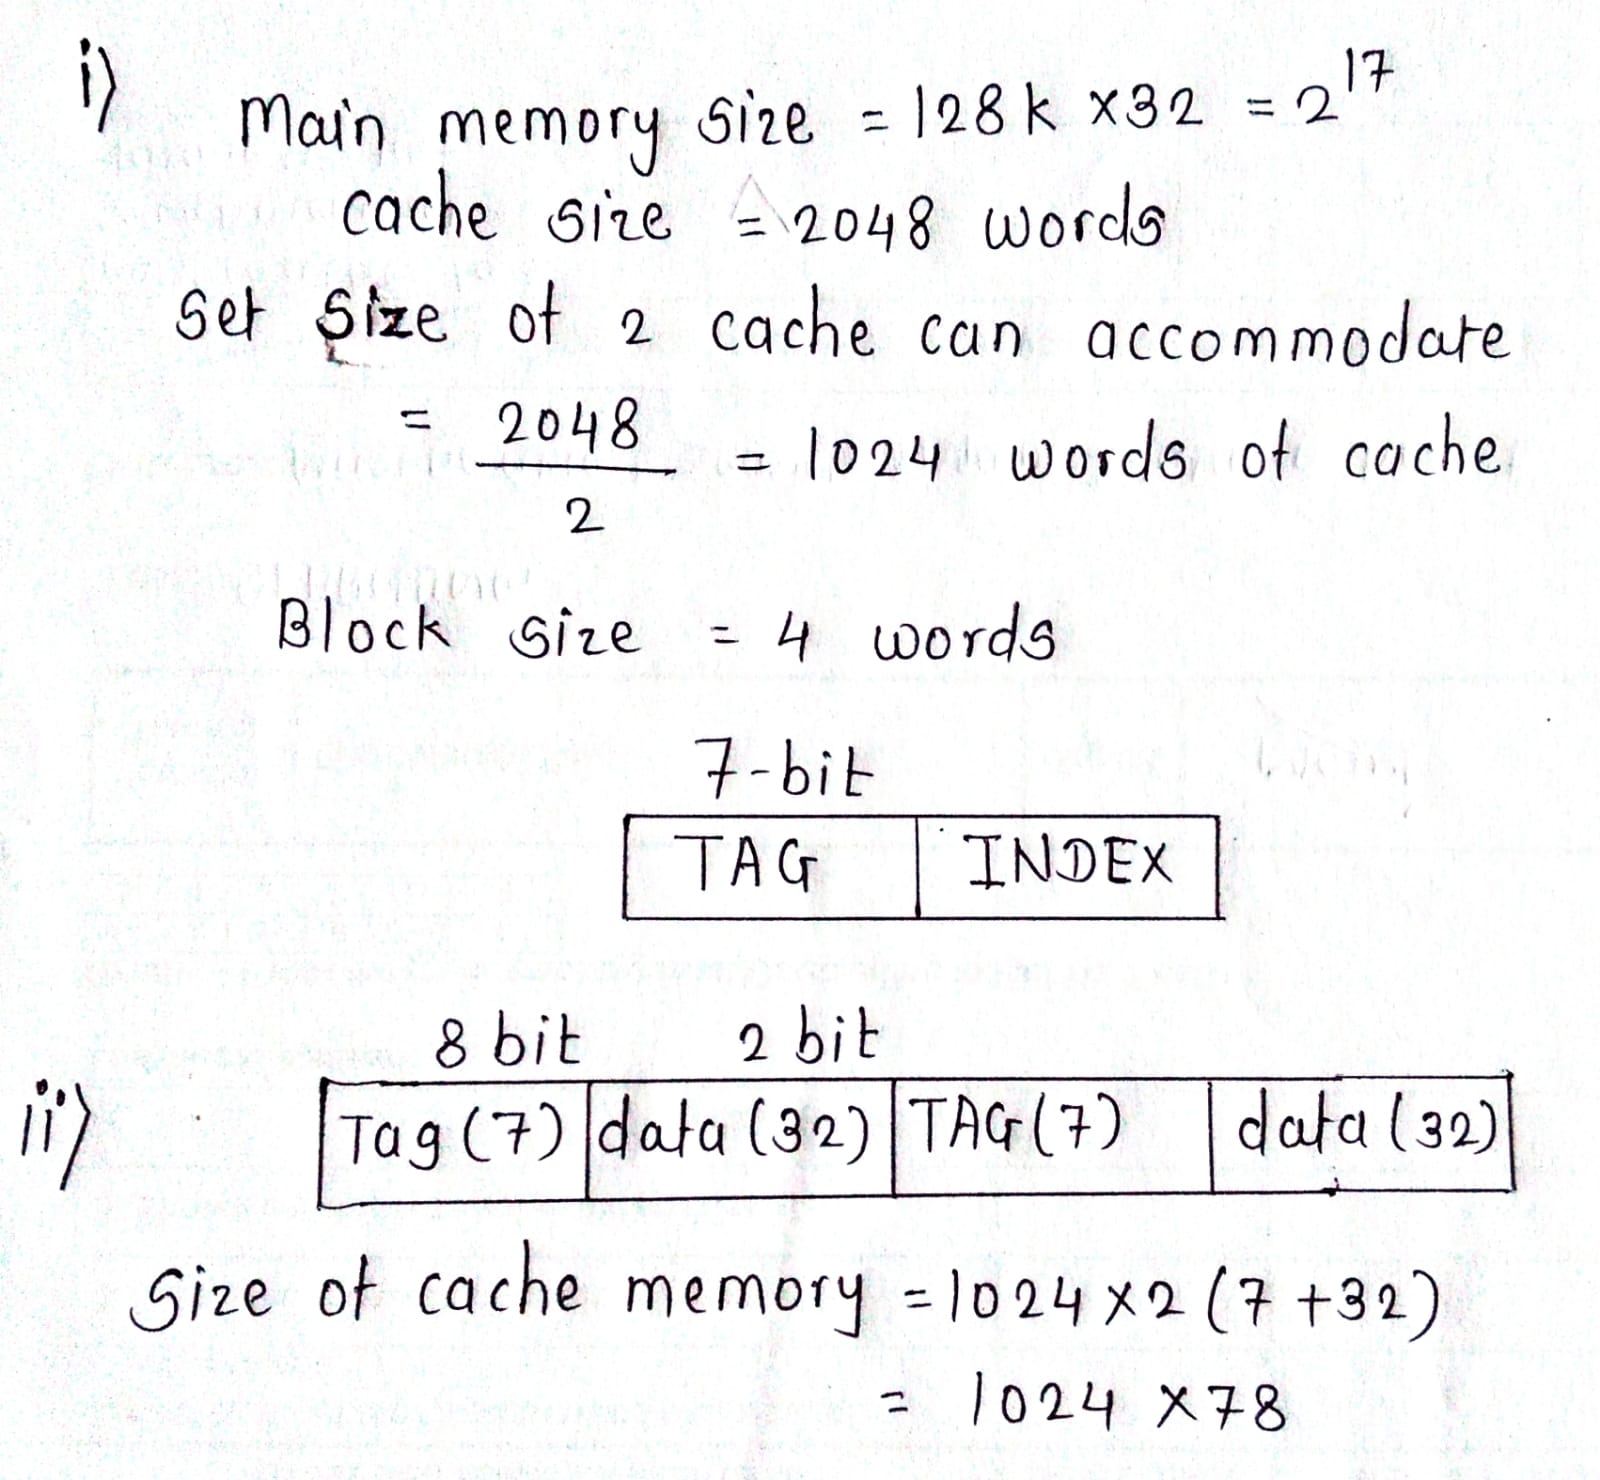 i)
Main memory size = 128K ×32 = 2¹⁷
cache size = 2048 words
set size of 2 cache can accommodate
= 2048 / 2 = 1024 words of cache
Block size = 4 words
7-bit
TAG INDEX
8 bit 2 bit
ii) Tag(7) data(32) TAG(7) data(32)
size of cache memory = 1024×2(7+32)
= 1024 ×78